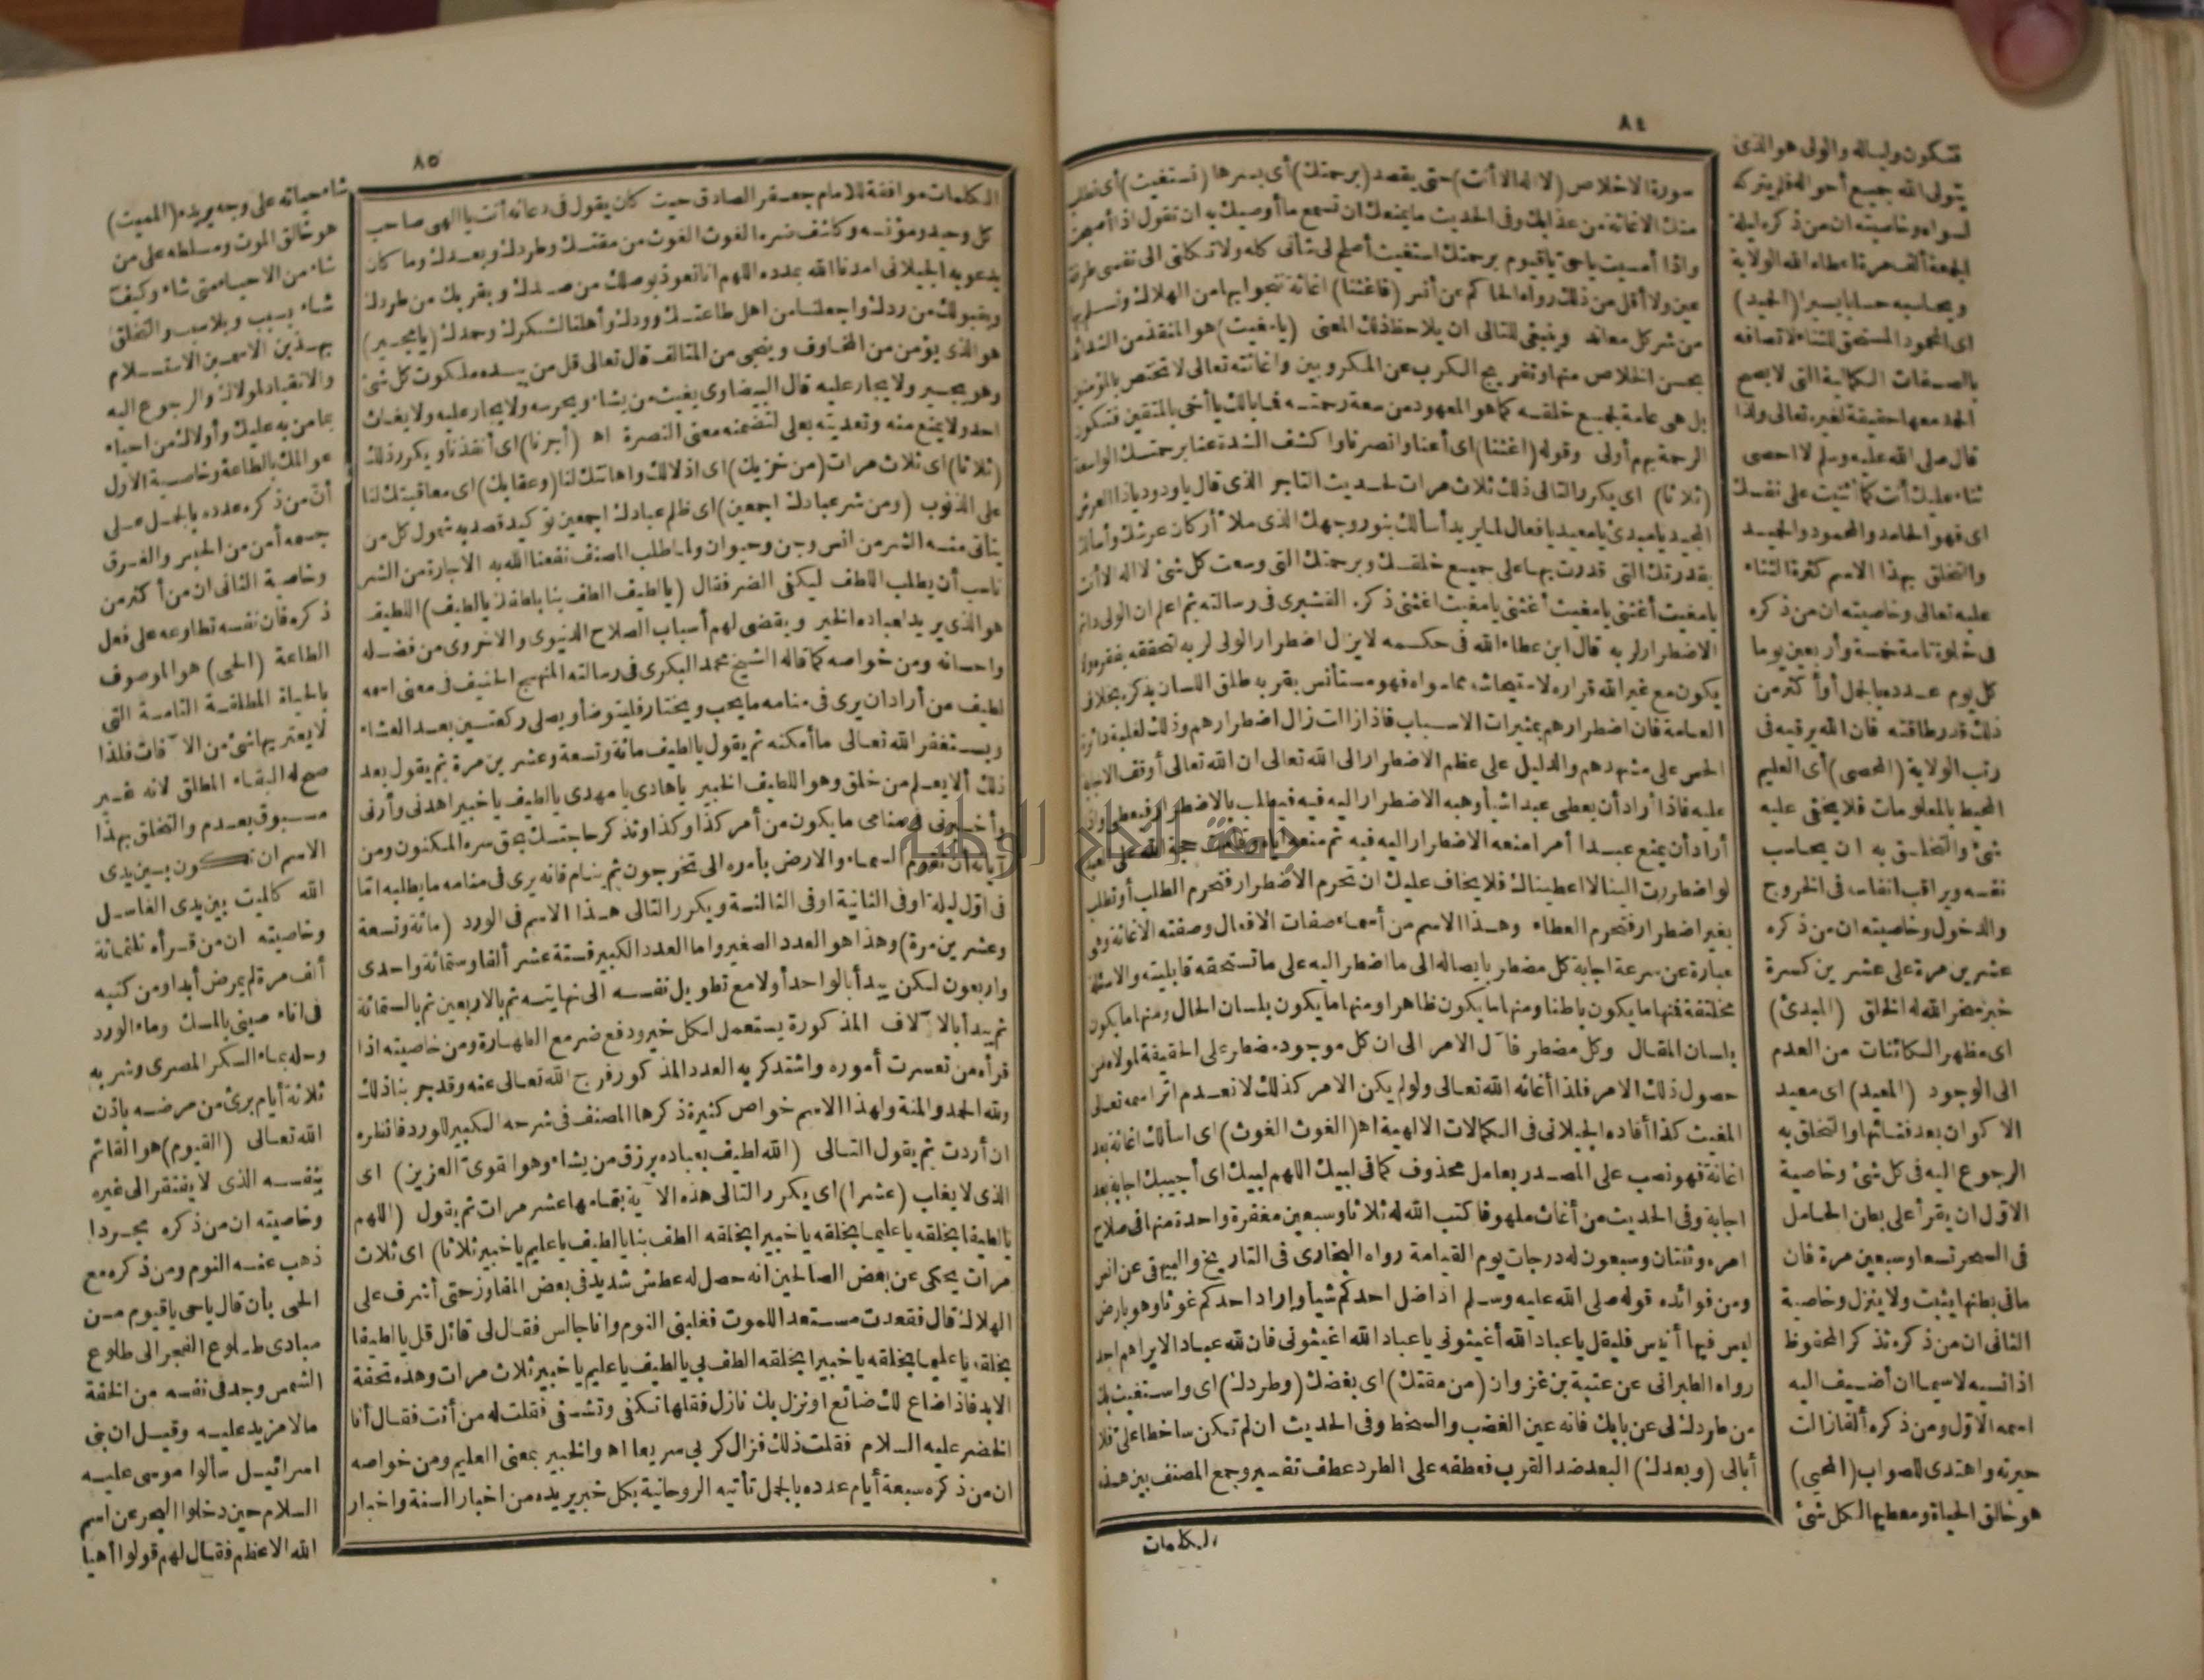 ٨٤
سورة الاخلاص (لا اله الا أنت) حتى يقصد (برحمتك) أى بسرها (نستغيث) أى نطلب
منك الاغاثة من عذابك وفى الحديث ما يمنعك ان تسمع ما أوصيك به ان تقول اذا أصبحت
واذا أمسيت ياحى ياقيوم برحمتك استغيث أصلح لى شأنى كله ولا تكلنى الى نفسى طرفة
عين ولا أقل من ذلك رواه الحاكم عن أنس (فاغثنا) اغاثة ننجو بها من الهلاك ونسلم بها
من شر كل معاند وينبغى للتالى ان يلاحظ ذلك المعنى (يامغيث) هو المنقذ من الشدائد
بحسن الخلاص منها وتفريج الكرب عن المكروبين واغاثته تعالى لا تختص بالمؤمنين
بل هى عامة لجميع خلقه كما هو المعهود من سعة رحمته فما بالك ياأخى بالمتقين فتكون
الرحمة بهم أولى وقوله (اغثنا) اى أعنا وانصرنا واكشف الشدة عنا برحمتك الواسعة
(ثلاثا) اى يكرر التالى ذلك ثلاث مرات لحديث التاجر الذى قال ياودود ياذا العرش
المجيد يامبدئ يامعيد يافعال لما يريد أسألك بنور وجهك الذى ملأ أركان عرشك وأسألك
بقدرتك التى قدرت بها على جميع خلقك وبرحمتك التى وسعت كل شئ لا اله الا أنت
يا مغيث أغثنى يامغيث أغثنى يامغيث اغثنى ذكره القشيرى فى رسالته ثم اعلم ان الولى دائم
الاضطرار لربه قال ابن عطاء الله فى حكمه لا يزال اضطرار الولى لربه لتحققه بفقره ولا
يكون مع غير الله قراره لاستيحاشه مما سواه فهو مستأنس بقربه طلق اللسان بذكره بخلاف
العامة فان اضطرارهم بمثيرات الاسباب فاذا زالت زال اضطرارهم وذلك لغلبة دائرة
الحس على مشهدهم والدليل على عظم الاضطرار الى الله تعالى ان الله تعالى أوقف الاجابة
عليه فاذا أراد أن يعطى عبدا شيأ وهبه الاضطرار اليه فيه فيطلب بالاضطرار فيعطى واذا
أراد أن يمنع عبدا أمرا منعه الاضطرار اليه فيه ثم منعه اياه
لو اضطررت الينا لاعطيناك فلا يخاف عليك ان تحرم الاضطرار فتحرم الطلب أو تطلب
بغير اضطرار فتحرم العطاء وهذا الاسم من أسماء صفات الافعال وصفته الاغاثة وهى
عبارة عن سرعة اجابة كل مضطر بايصاله الى ما اضطر اليه على ما تستحقه قابليته والاسئلة
مختلفة فمنها ما يكون باطنا ومنها ما يكون ظاهرا ومنها ما يكون بلسان الحال ومنها ما يكون
بلسان المقال وكل مضطر فآل الامر الى ان كل موجود مضطر على الحقيقة لمولاه من
حصول ذلك الامر فلذا أغاثه الله تعالى ولو لم يكن الامر كذلك لانعدم اثر اسمه تعالى
المغيث كذا أفاده الجيلانى فى الكمالات الالهية اه (الغوث الغوث) اى اسألك اغاثة بعد
اغاثة فهو نصب على المصدر بعامل محذوف كما فى لبيك اللهم لبيك اى أجيبك اجابة بعد
اجابة وفى الحديث من أغاث ملهوفا كتب الله له ثلاثا وسبعين مغفرة واحدة منها فى صلاح
امره وثنتان وسبعون له درجات يوم القيامة رواه البخارى فى التاريخ والبيهقى عن انس
ومن فوائده قوله صلى الله عليه وسلم اذا ضل احدكم شيأ واراد احدكم غوثا وهو بارض
ليس فيها أنيس فليقل ياعباد الله أغيثونى ياعباد الله اغيثونى فان لله عبادا لا يراهم احد
رواه الطبرانى عن عتبة بن غزوان (من مقتك) اى بغضك (وطردك) اى واستغيث بك
من طردك لى عن بابك فانه عين الغضب والسخط وفى الحديث ان لم تكن ساخطا على فلا
أبالى (وبعدك) البعد ضد القرب فعطفه على الطرد عطف تفسير وجمع المصنف بين هذه
الكلمات
فتكون وليا له والولى هو الذى
يتولى الله جميع أحواله فلم يتركه
لسواه وخاصيته ان من ذكره ليلة
الجمعة ألف مرة اعطاه الله الولاية
ويحاسبه حسابا يسيرا (الحميد)
اى المحمود المستحق للثناء لاتصافه
بالصفات الكمالية التى لا يصح
الحمد معها حقيقة لغيره تعالى ولذا
قال صلى الله عليه وسلم لا احصى
ثناء عليك أنت كما أثنيت على نفسك
اى فهو الحامد والمحمود والحميد
والتخلق بهذا الاسم كثرة الثناء
عليه تعالى وخاصيته ان من ذكره
فى خلوة تامة خمسة وأربعين يوما
كل يوم عدده بالجمل أو أكثر من
ذلك قدر طاقته فان الله يرقيه فى
رتب الولاية (المحصى) أى العليم
المحيط بالمعلومات فلا يخفى عليه
شئ والتخلق به ان يحاسب
نفسه ويراقب انفاسه فى الخروج
والدخول وخاصيته ان من ذكره
عشرين مرة على عشرين كسرة
خبز سخر الله له الخلق (المبدئ)
اى مظهر الكائنات من العدم
الى الوجود (المعيد) اى معيد
الاكوان بعد فنائها والتخلق به
الرجوع اليه فى كل شئ وخاصية
الاول ان يقرأ على بطن الحامل
فى السحر تسعا وسبعين مرة فان
ما فى بطنها يثبت ولا ينزل وخاصية
الثانى ان من ذكره تذكر المحفوظ
اذا نسيه لا سيما ان أضيف اليه
اسمه الاول ومن ذكره ألفا زالت
حيرته واهتدى للصواب (المحيى)
هو خالق الحياة ومعطيها لكل شئ
٨٥
الكلمات موافقة للامام جعفر الصادق حيث كان يقول فى دعائه أنت يا الهى صاحب
كل وحيد ومؤنسه وكاشف ضره الغوث الغوث من مقتك وطردك وبعدك وما كان
يدعو به الجيلانى امدنا الله بمدده اللهم انا نعوذ بوصلك من صدك وبقربك من طردك
وبقبولك من ردك واجعلنا من اهل طاعتك وودك وأهلنا لشكرك وحمدك (يامجير)
هو الذى يؤمن من المخاوف وينجى من المتالف قال تعالى قل من بيده ملكوت كل شئ
وهو يجير ولا يجار عليه قال البيضاوى يغيث من يشاء ويحرسه ولا يجار عليه ولا يغاث
احد ولا يمنع منه وتعديته بعلى لتضمنه معنى النصرة اه (أجرنا) اى أنقذنا ويكرر ذلك
(ثلاثا) اى ثلاث مرات (من خزيك) اى اذلالك واهانتك لنا (وعقابك) اى معاقبتك لنا
على الذنوب (ومن شر عبادك اجمعين) اى ظلم عبادك اجمعين توكيد قصد به شمول كل من
يتأتى منه الشر من انس وجن وحيوان ولما طلب المصنف نفعنا الله به الاجارة من الشر
ناسب أن يطلب اللطف ليكفى الضر فقال (يالطيف الطف بنا بلطفك يالطيف) اللطيف
هو الذى يريد لعباده الخير ويقضى لهم أسباب الصلاح الدنيوى والاخروى من فضله
واحسانه ومن خواصه كما قاله الشيخ محمد البكرى فى رسالته المنهج الحنيف فى معنى اسمه
لطيف من أراد ان يرى فى منامه ما يحب ويختار فليتوضأ ويصلى ركعتين بعد العشاء
ويستغفر الله تعالى ما أمكنه ثم يقول يالطيف مائة وتسعة وعشرين مرة ثم يقول بعد
ذلك ألا يعلم من خلق وهو اللطيف الخبير ياهادى يامهدى يالطيف ياخبير اهدنى وأرنى
منامى ما يكون من أمر كذا وكذا وتذكر حاجتك بحق سره المكنون ومن
آياته ان تقوم السماء والارض بأمره الى تخرجون ثم ينام فانه يرى فى منامه ما يطلبه اما
فى اول ليلة او فى الثانية او فى الثالثة ويكرر التالى هذا الاسم فى الورد (مائة وتسعة
وعشرين مرة) وهذا هو العدد الصغير واما العدد الكبير فستة عشر ألفا وستمائة واحدى
واربعون لكن يبدأ بالواحد أولا مع تطويل نفسه الى نهايته ثم بالاربعين ثم بالستمائة
ثم يبدأ بالآلاف المذكورة يستعمل لكل خير ودفع ضر مع الطهارة ومن خاصيته اذا
قرأه من تعسرت أموره واشتد كربه العدد المذكور فرج الله تعالى عنه وقد جربنا ذلك
ولله الحمد والمنة ولهذا الاسم خواص كثيرة ذكرها المصنف فى شرحه الكبير للورد فانظره
ان أردت ثم يقول التالى (الله لطيف بعباده يرزق من يشاء وهو القوى العزيز) اى
الذى لا يغلب (عشرا) اى يكرر التالى هذه الآية بتمامها عشر مرات ثم يقول (اللهم
يالطيفا بخلقه ياعليما بخلقه ياخبيرا بخلقه الطف بنا يالطيف ياعليم ياخبير ثلاثا) اى ثلاث
مرات يحكى عن بعض الصالحين انه حصل له عطش شديد فى بعض المفاوز حتى أشرف على
الهلاك قال فقعدت مستعدا للموت فغلبنى النوم وانا جالس فقال لى قائل قل يالطيفا
بخلقه ياعليما بخلقه ياخبيرا بخلقه الطف بى يالطيف ياعليم ياخبير ثلاث مرات وهذه تحفة
الابد فاذا ضاع لك ضائع او نزل بك نازل فقلها تكفى وتشفى فقلت له من أنت فقال أنا
الخضر عليه السلام فقلت ذلك فزال كربى سريعا اه والخبير بمعنى العليم ومن خواصه
ان من ذكره سبعة أيام عدده بالجمل تأتيه الروحانية بكل خبر يريده من اخبار السنة واخبار
شاء حياته على وجه يريده (المميت)
هو خالق الموت ومسلطه على من
شاء من الاحياء متى شاء وكيف
شاء بسبب وبلا سبب والتخلق
بهذين الاسمين الاستسلام
والانقياد لمولاك والرجوع اليه
بما من به عليك وأولاك من احياء
عوالمك بالطاعة وخاصية الاول
أن من ذكره عدده بالجمل على
جسمه أمن من الحبس والغرق
وخاصية الثانى ان من أكثر من
ذكره فان نفسه تطاوعه على فعل
الطاعة (الحى) هو الموصوف
بالحياة المطلقة التامة التى
لا يعتريها شئ من الآفات فلذا
صح له البقاء المطلق لانه غير
مسبوق بعدم والتخلق بهذا
الاسم ان تكون بين يدى
الله كالميت بين يدى الغاسل
وخاصيته ان من قرأه ثلثمائة
ألف مرة لم يمرض أبدا ومن كتبه
فى اناء صينى بالمسك وماء الورد
وحله بماء السكر المصرى وشربه
ثلاثة أيام برئ من مرضه باذن
الله تعالى (القيوم) هو القائم
بنفسه الذى لا يفتقر الى غيره
وخاصيته ان من ذكره مجردا
ذهب عنه النوم ومن ذكره مع
الحى بأن قال ياحى ياقيوم من
مبادى طلوع الفجر الى طلوع
الشمس وجد فى نفسه من الخفة
مالا مزيد عليه وقيل ان بنى
اسرائيل سألوا موسى عليه
السلام حين دخلوا البحر عن اسم
الله الاعظم فقال لهم قولوا أهيا
جامعة النجاح الوطنية